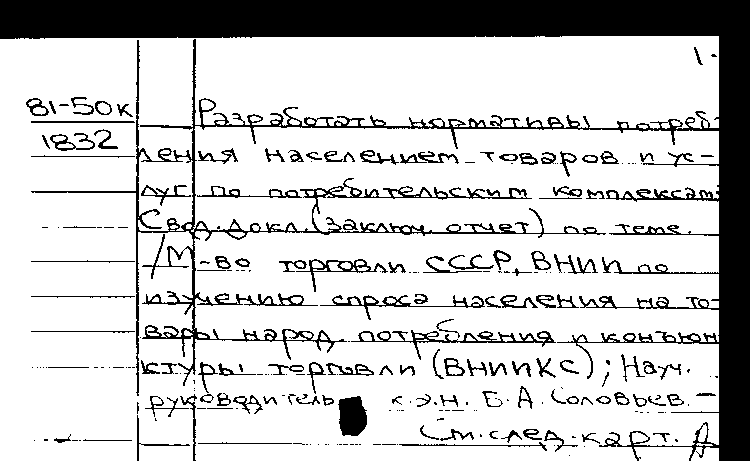 1.
81-50к Разработать нормативы потреб-
1832 ления населением товаров и ус-
луг по потребительским комплексам:
Свод. докл. (заключ. отчет) по теме.
/М-во торговли СССР, ВНИИ по
изучению спроса населения на то-
вары народ. потребления и конъюн
ктуры торговли (ВНИИКС); Науч.
руководитель к.э.н. Б.А. Соловьев. –
См. след. карт.